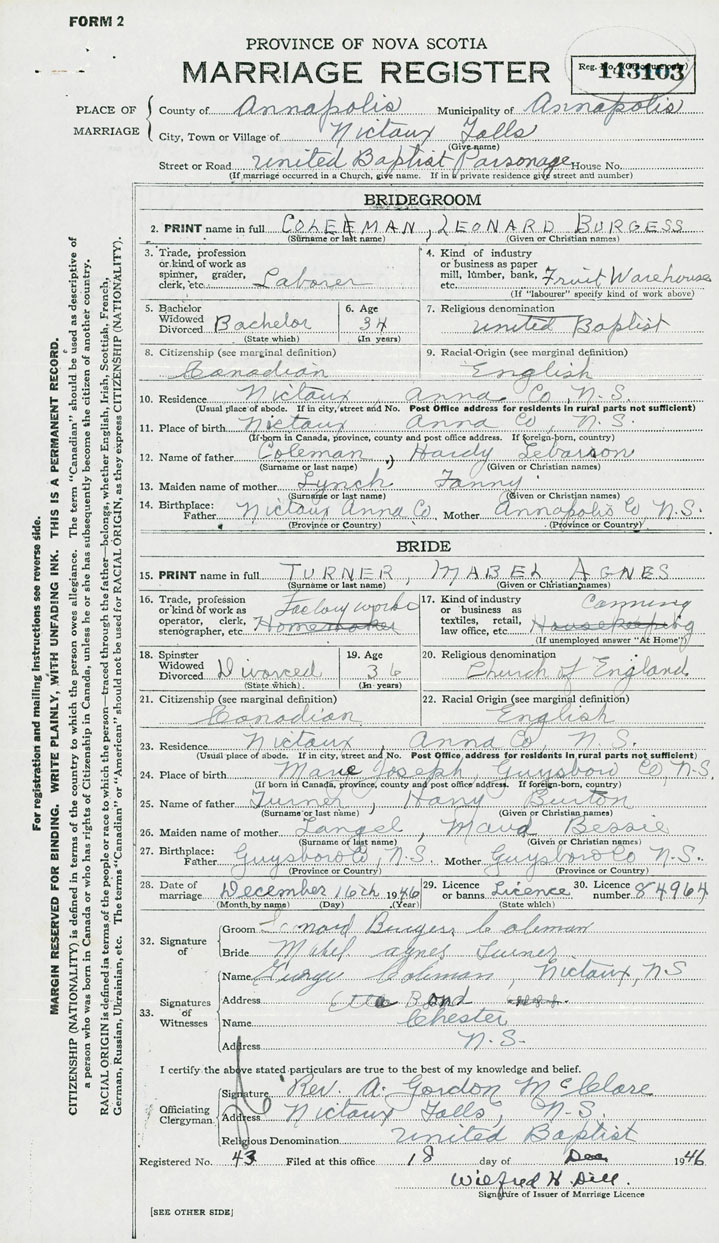 FORM 2
PROVINCE OF NOVA SCOTIA
MARRIAGE REGISTER
Reg. No. 143103
PLACE OF MARRIAGE
County of Annapolis Municipality of Annapolis
City, Town or Village of Nictaux Falls
(Give name)
Street or Road United Baptist Parsonage House No.
(If marriage occurred in a Church, give name. If in a private residence give street and number)
BRIDEGROOM
2. PRINT name in full COLEMAN, LEONARD BURGESS
(Surname or last name) (Given or Christian names)
3. Trade, profession or kind of work as spinner, grader, clerk, etc. Laborer
4. Kind of industry or business as paper mill, lumber, bank, etc. Fruit Warehouse
(If "labourer" specify kind of work above)
5. Bachelor Widowed Divorced Bachelor
(State which)
6. Age 34
(In years)
7. Religious denomination United Baptist
8. Citizenship (see marginal definition) Canadian
9. Racial Origin (see marginal definition) English
10. Residence Nictaux Anna Co, N.S.
(Usual place of abode. If in city, street and No. Post Office address for residents in rural parts not sufficient)
11. Place of birth Nictaux Anna Co, N.S.
(If born in Canada, province, county and post office address. If foreign-born, country)
12. Name of father Coleman, Hardy
(Surname or last name) (Given or Christian names)
13. Maiden name of mother Lynch Fanny
(Surname or last name) (Given or Christian names)
14. Birthplace: Father Nictaux Anna Co. Mother Annapolis Co N.S.
(Province or Country) (Province or Country)
BRIDE
15. PRINT name in full TURNER, MABEL AGNES
(Surname or last name) (Given or Christian names)
16. Trade, profession or kind of work as operator, clerk, stenographer, etc. Factory work Homemaker
17. Kind of industry or business as textiles, retail, law office, etc. Canning Housekeeping
(If unemployed answer "At Home")
18. Spinster Widowed Divorced Divorced
(State which)
19. Age 36
(In years)
20. Religious denomination Church of England
21. Citizenship (see marginal definition) Canadian
22. Racial Origin (see marginal definition) English
23. Residence Nictaux, Anna Co, N.S.
(Usual place of abode. If in city, street and No. Post Office address for residents in rural parts not sufficient)
24. Place of birth Marie Joseph, Guysboro Co, N.S.
(If born in Canada, province, county and post office address. If foreign-born, country)
25. Name of father Turner, Harry Burton
(Surname or last name) (Given or Christian names)
26. Maiden name of mother Langel, Maud Bessie
(Surname or last name) (Given or Christian names)
27. Birthplace: Father Guysboro Co, N.S. Mother Guysboro Co, N.S.
(Province or Country) (Province or Country)
28. Date of marriage December 16th 1946
(Month by name) (Day) (Year)
29. Licence or banns Licence
(State which)
30. Licence number 84964
32. Signature of
Groom Leonard Burgess Coleman
Bride Mabel Agnes Turner
33. Signatures of Witnesses
Name George Coleman, Nictaux, N.S
Address Etta Bond
Name Chester
Address N.S.
I certify the above stated particulars are true to the best of my knowledge and belief.
Officiating Clergyman
Signature Rev. A. Gordon McClare
Address Nictaux Falls, N.S.
Religious Denomination United Baptist
Registered No. 43 Filed at this office 18 day of Dec 1946
Wilfred H. Dill.
Signature of Issuer of Marriage Licence
[SEE OTHER SIDE]
For registration and mailing instructions see reverse side.
MARGIN RESERVED FOR BINDING. WRITE PLAINLY, WITH UNFADING INK. THIS IS A PERMANENT RECORD.
CITIZENSHIP (NATIONALITY) is defined in terms of the country to which the person owes allegiance. The term "Canadian" should be used as descriptive of
a person who was born in Canada or who has rights of Citizenship in Canada, unless he or she has subsequently become the citizen of another country.
RACIAL ORIGIN is defined in terms of the people or race to which the person—traced through the father—belongs, whether English, Irish, Scottish, French,
German, Russian, Ukrainian, etc. The terms "Canadian" or "American" should not be used for RACIAL ORIGIN, as they express CITIZENSHIP (NATIONALITY).